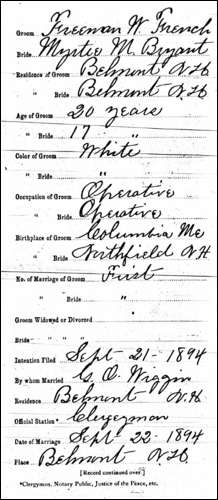 Groom Freeman W. French
Bride Myrtie M. Bryant
Residence of Groom Belmont N.H
" Bride Belmont N.H.
Age of Groom 20 years
" Bride 17 "
Color of Groom White
" Bride "
Occupation of Groom Operative
" Bride Operative
Birthplace of Groom Columbia Me
" Bride Northfield N.H
No. of Marriage of Groom First
" Bride "
Groom Widowed or Divorced
Bride " "
Intention Filed Sept 21- 1894
By whom Married G. O. Wiggin
Residence Belmont N.H.
Official Station* Clergyman
Date of Marriage Sept 22- 1894
Place Belmont N.H.
[Record continued over.]
*Clergyman, Notary Public, Justice of the Peace, etc.